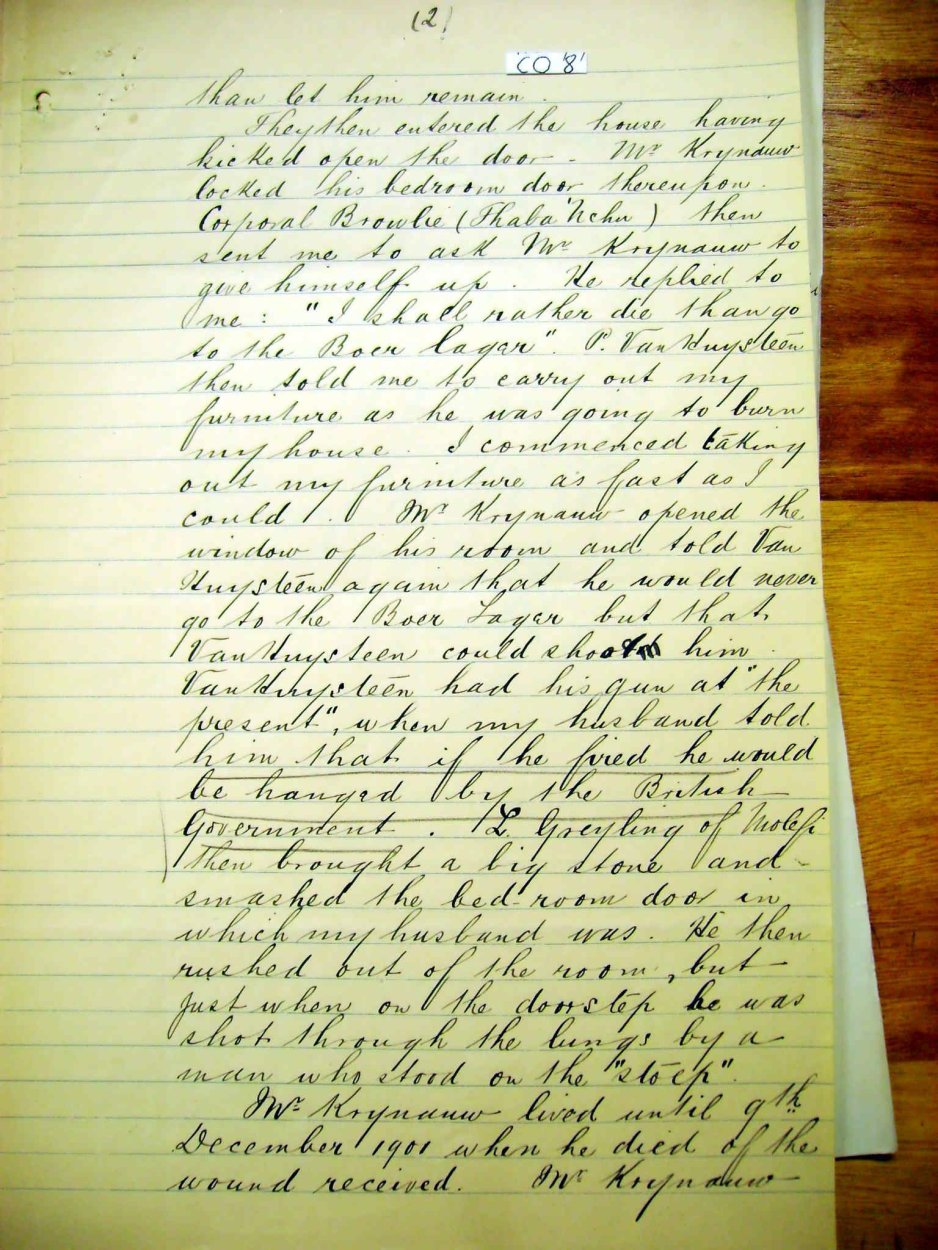 (2)
'CO '8'
than let him remain.
They then entered the house having
kicked open the door - Mr Krynauw
locked his bedroom door thereupon.
Corporal Browlie (Thaba 'Nchu) then
sent me to ask Mr Krynauw to
give himself up. He replied to
me: "I shall rather die than go
to the Boer lager". P. Van Huysteen
then told me to carry out my
furniture as he was going to burn
my house. I commenced taking
out my furniture as fast as I
could. Mr Krynauw opened the
window of his room and told Van
Huysteen again that he would never
go to the Boer Lager but that
Van Huysteen could shoot him.
Van Huysteen had his gun at "the
present", when my husband told
him that if he fired he would
be hanged by the British
Government. L. Greyling of Molefi
then brought a big stone and
smashed the bed-room door in
which my husband was. He then
rushed out of the room, but
just when on the doorstep he was
shot through the lungs by a
man who stood on the "stoep".
Mr Krynauw lived until 9th
December 1901 when he died of the
wound received. Mr Krynauw